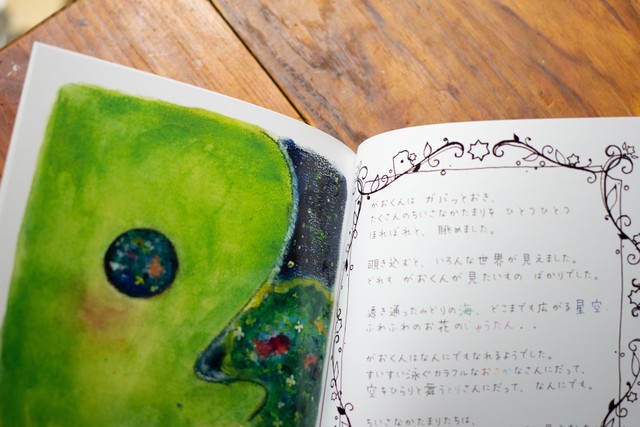 がおくんは ガバっとおき、
たくさんのちいさなかたまりを ひとつひとつ
ほれぼれと、眺めました。
覗き込むと、いろんな世界が見えました。
どれも がおくんが見たいもの ばかりでした。
透き通ったみどりの海、どこまでも広がる星空、
ふわふわのお花のじゅうたん。。
がおくんはなんにでもなれるようでした。
すいすい泳ぐカラフルなおさかなさんにだって、
空をひらりと舞うとりさんにだって、なんにでも。
ちいさなかたまりたちは、